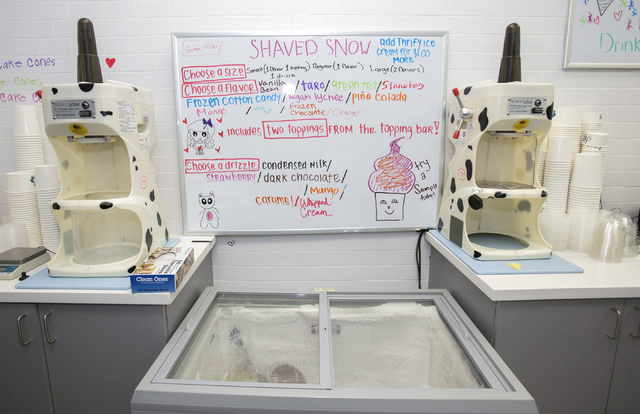 Cake Cones
Cake Co
SHAVED SNOW
add Thrifty ice
cream for $1.00
MORE
Choose a size: Small (1 flavor 1 topping) Regular (1 flavor) Large (2 flavors)
1 drizzle
Choose a flavor: Vanilla Bean / taro / green tea / Strawberry
Frozen Cotton candy / vegan lychee / piña colada
Mango / Frozen Chocolate /
includes Two toppings FROM the topping bar!
Choose a drizzle: condensed milk /
strawberry / dark chocolate /
caramel / Mango /
Whipped
Cream
try
a
Sample
today!
Drink
Clean Ones